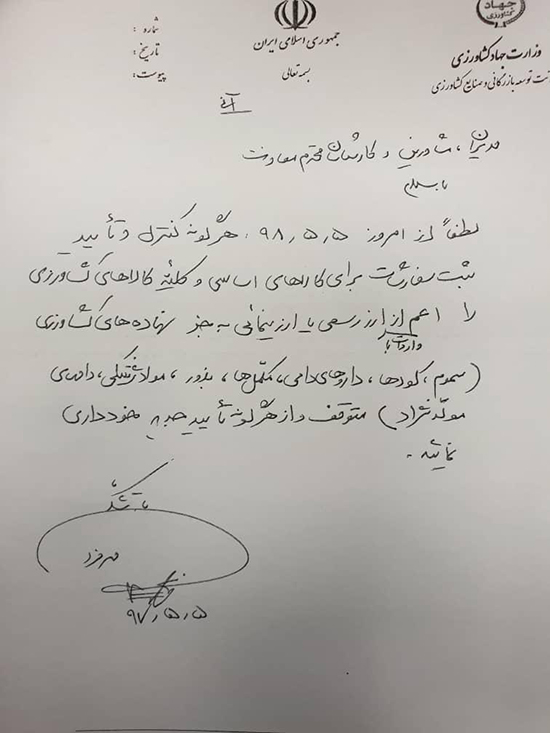 جهاد
کشاورزی
جمهوری اسلامی ایران
بسمه تعالی
وزارت جهاد کشاورزی
توسعه بازرگانی و صنایع کشاورزی
شماره :
تاریخ :
پیوست :
آنی
مدیران، مشاورین و کارشناسان محترم معاونت
با سلام
لطفاً از امروز ۹۸/۵/۵ هرگونه کنترل و تأیید
ثبت سفارشات برای کالاهای اساسی و کلیه کالاهای کشاورزی
را اعم از ارز رسمی یا ارز نیمائی به جز نهاده‌های کشاورزی
واردات با
(سموم، کودها، داروهای دامی، مکمل‌ها، بذور، مواد ژنتیکی، دامهای
مولد نژاد) متوقف و از هرگونه تأیید جدید خودداری
نمائید.
با تشکر
مهرفرد
۹۷/۵/۵